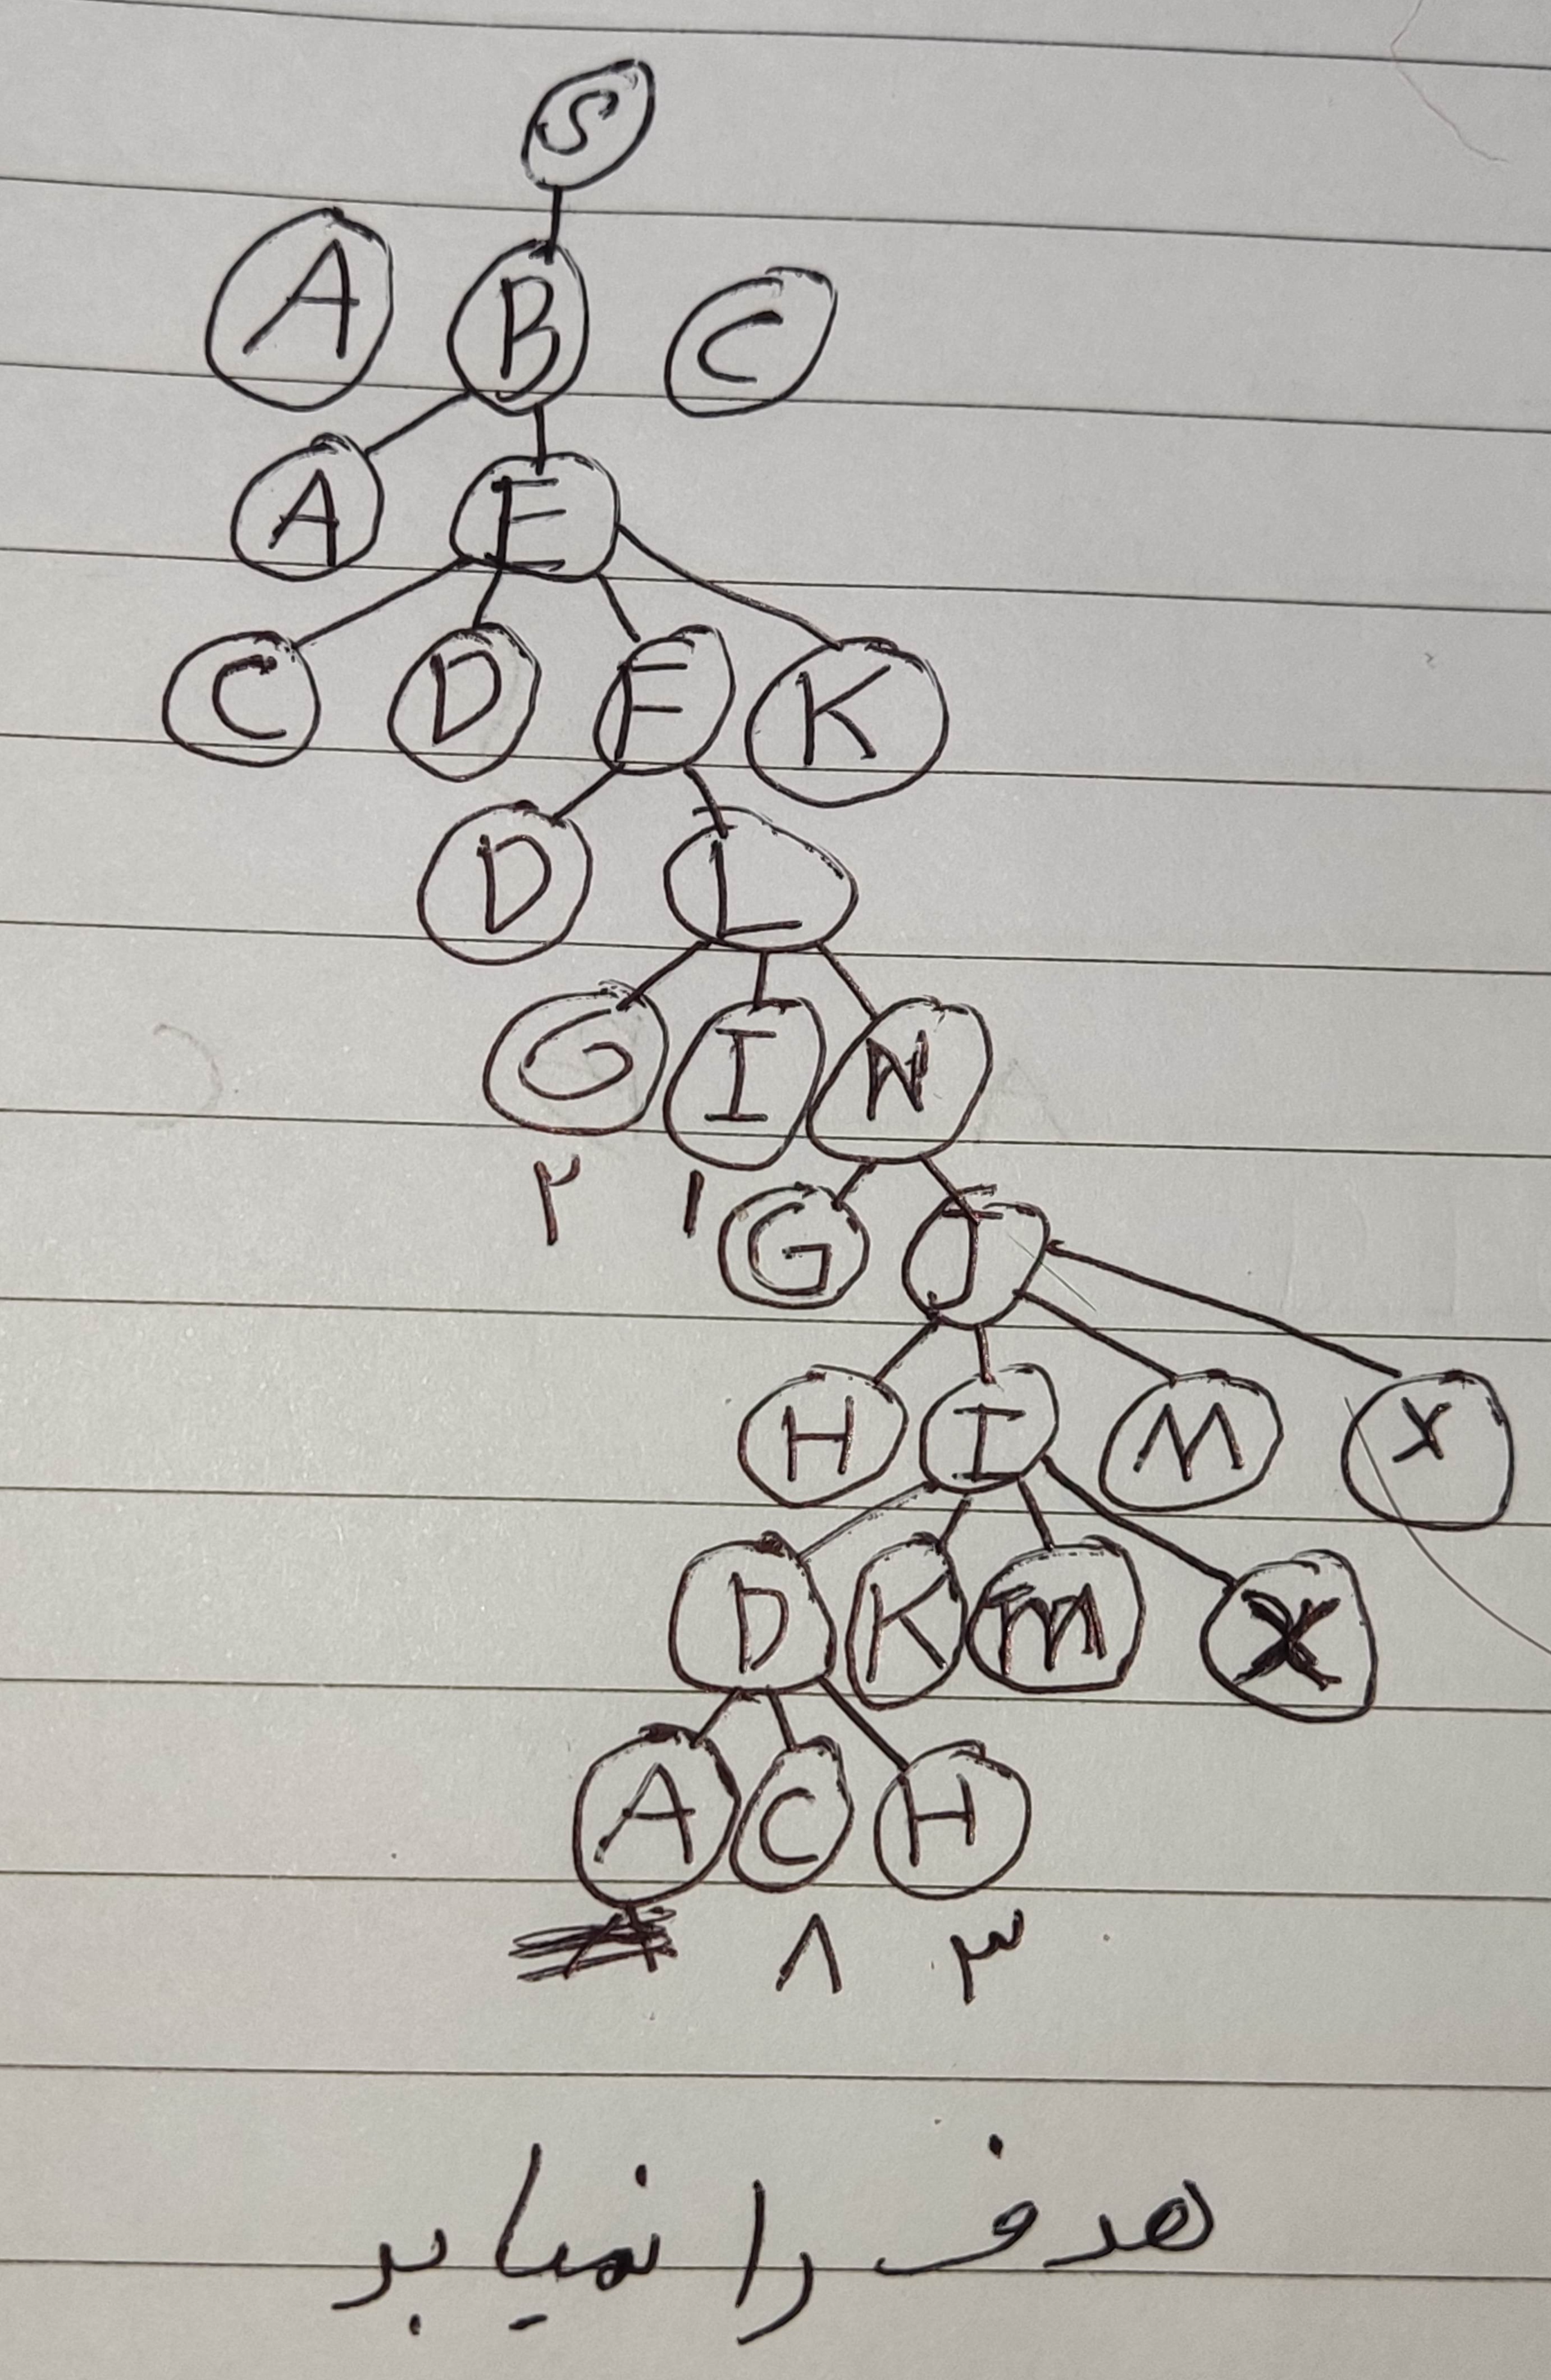 S
A B C
A E
C D F K
D L
G I N
۲ ۱
G J
H I M X
D K M X
A C H
۸ ۳
هدف را نمیابد